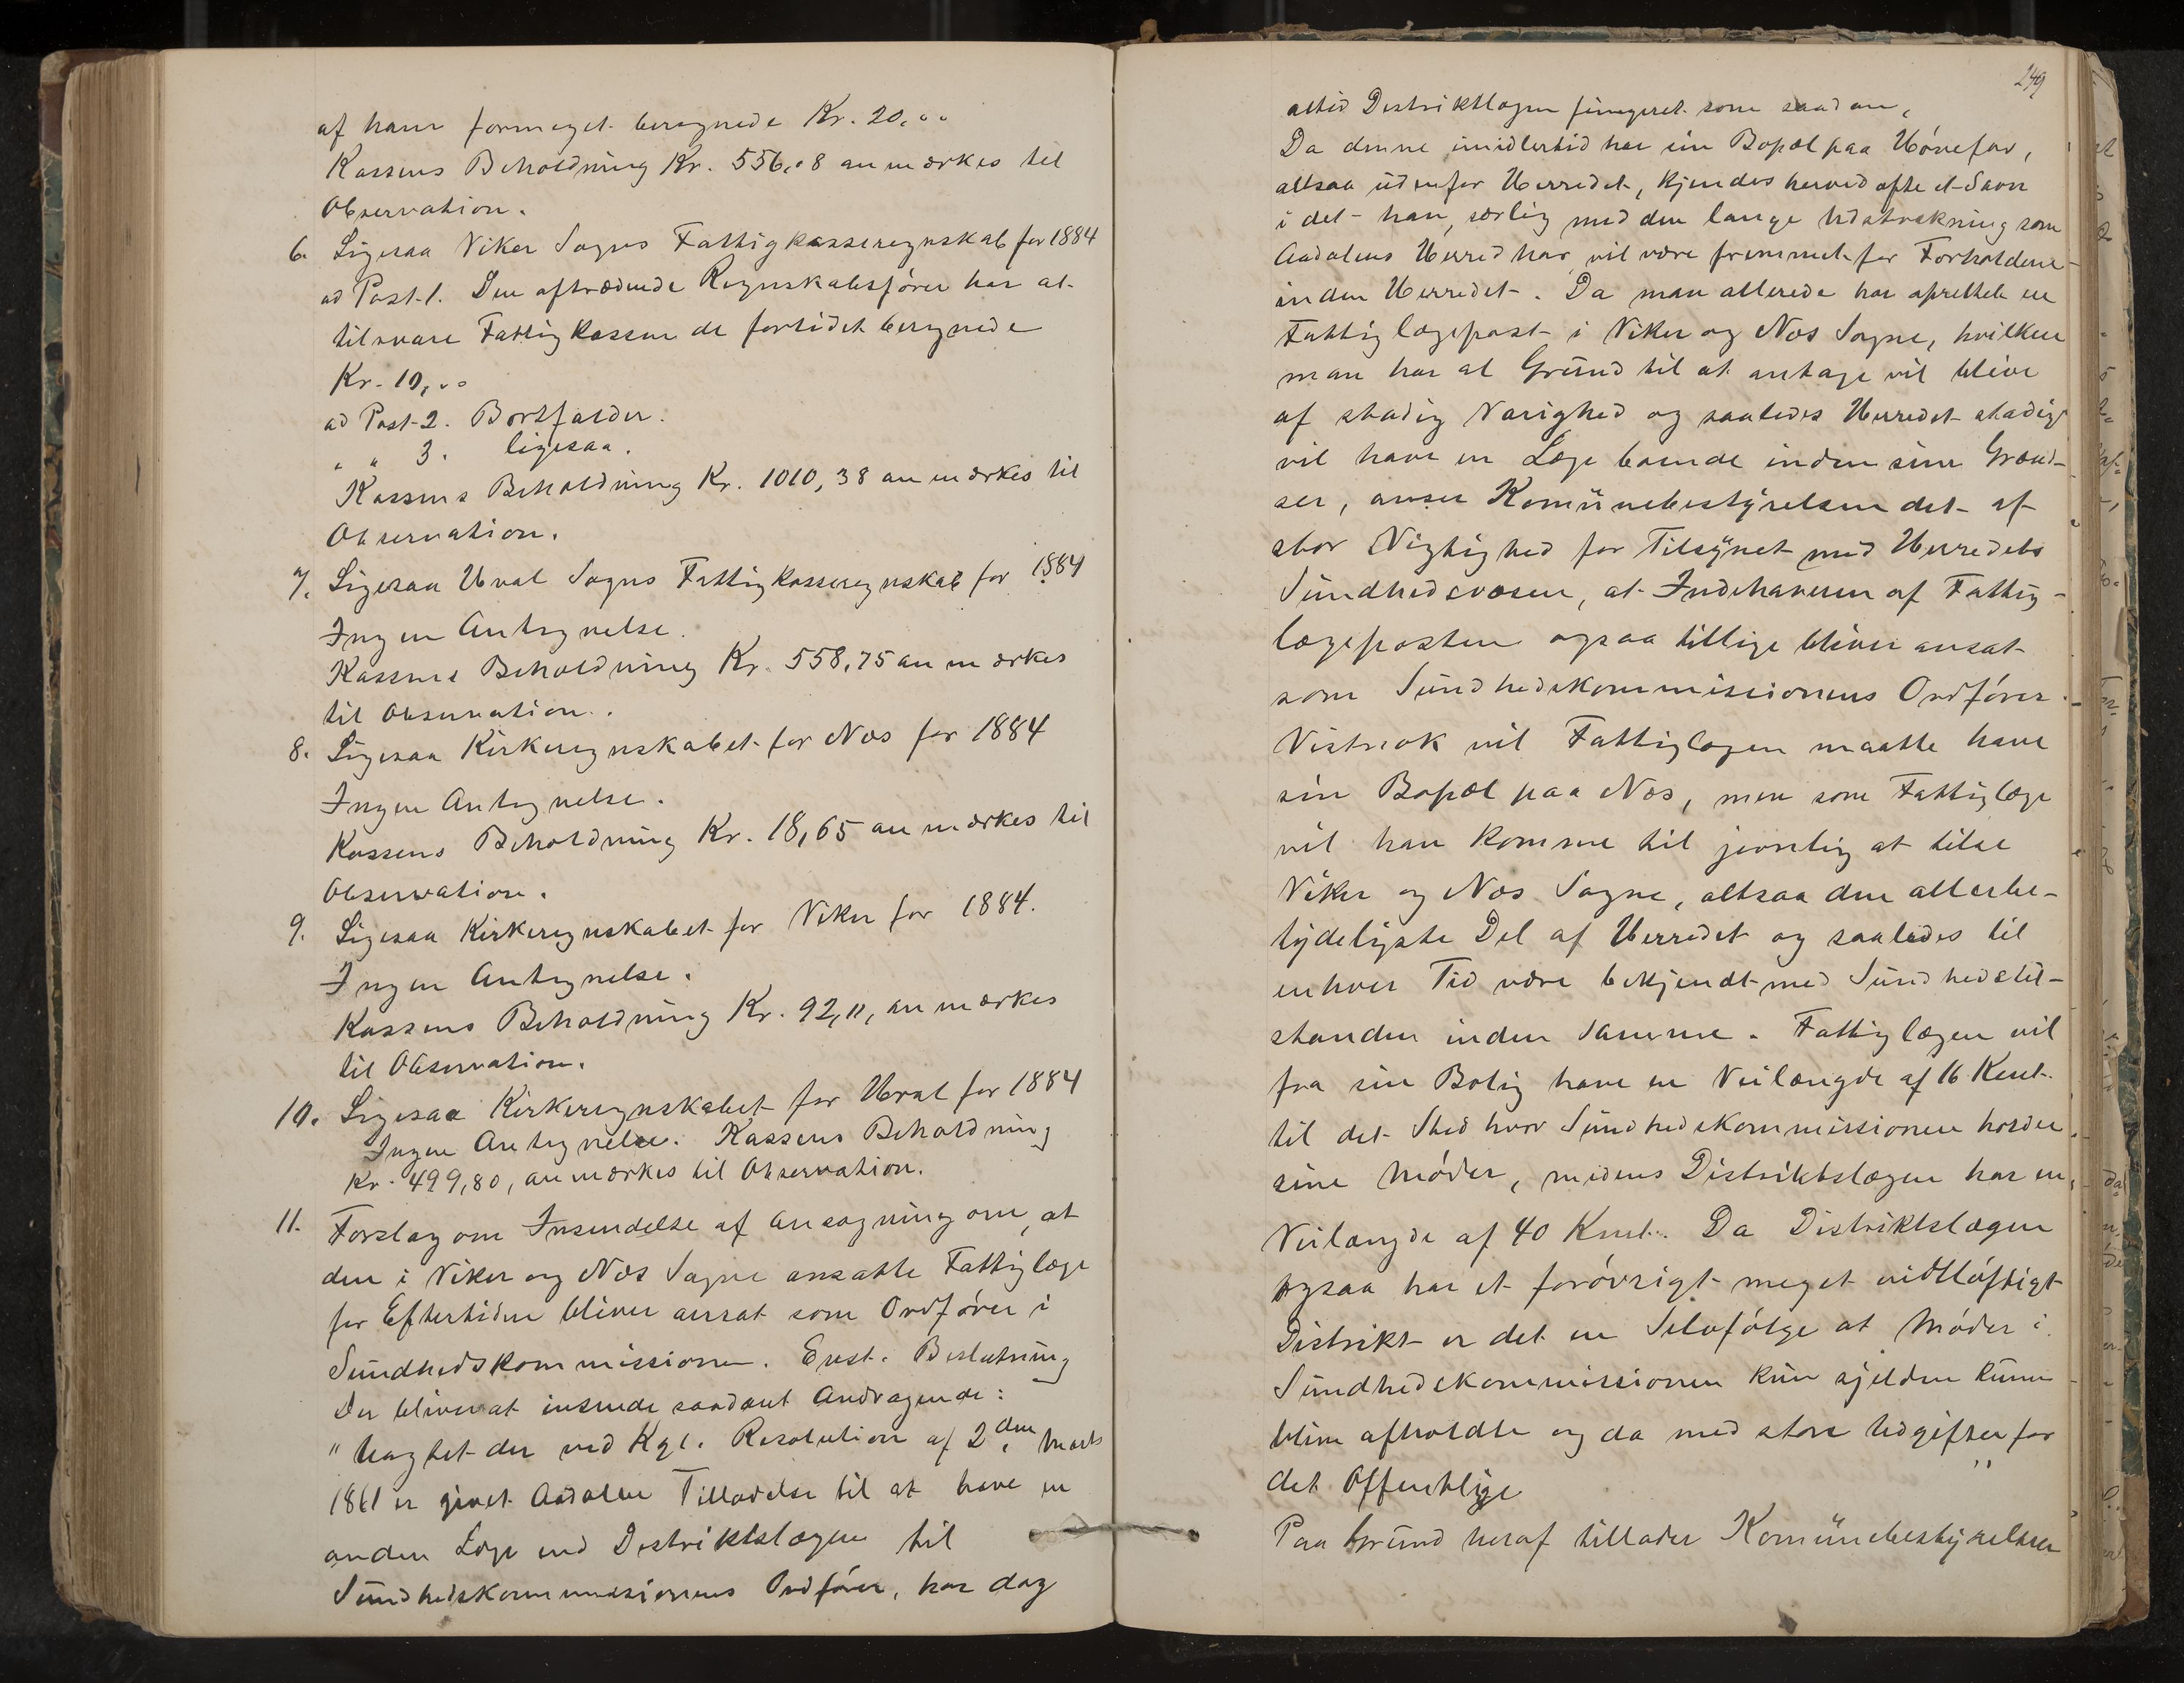 af ham formeget beregnede Kr. 20,00
Kassens Beholdning Kr. 556,08 anmærkes til
Observation.
6. Ligesaa Viker Sogns Fattigkasseregnskab for 1884
ad Post 1. Den aftrædende Regnskabsfører har at
tilsvare Fattigkassen de fortidet beregnede
Kr. 10,00
ad Post 2. Bortfalder.
" " 3. ligesaa.
Kassens Beholdning Kr. 1010,38 anmærkes til
Observation.
7. Ligesaa Hval Sogns Fattigkasseregnskab for 1884
Ingen Antegnelse.
Kassens Beholdning Kr. 558,75 anmærkes
til Observation.
8. Ligesaa Kirkeregnskabet for Næs for 1884
Ingen Antegnelse.
Kassens Beholdning Kr. 18,65 anmærkes til
Observation.
9. Ligesaa Kirkeregnskabet for Viker for 1884.
Ingen Antegnelse.
Kassens Beholdning Kr. 92,11, anmærkes
til Observation.
10. Ligesaa Kirkeregnskabet for Hval for 1884
Ingen Antegnelse. Kassens Beholdning
Kr. 499,80, anmærkes til Observation.
11. Forslag om Insendelse af Ansøgning om, at
den i Viker og Næs Sogne ansatte Fattiglæge
for Eftertiden bliver ansat som Ordfører i
Sundhedskommissionen. Enst. Beslutning
Der bliver at insende saadant Andragende:
"Uagtet der ved Kgl. Resolution af 2den Marts
1861 er givet Aadalen Tilladelse til at have en
anden Læge end Distriktslægen til
Sundhedskommissionens Ordfører, har dog
249
altid Distriktlægen fungeret som saadan,
Da denne imidlertid har sin Bopæl paa Hønefos,
altsaa udenfor Herredet, kjendes herved ofte et Savn
i det han, særlig med den lange Udstrækning som
Aadalens Herred har, vil være fremmed for Forholdene
inden Herredet. Da man allerede har oprettet en
Fattiglægepost i Viker og Næs Sogne, hvilken
man har al Grund til at antage vil blive
af stadig Varighed og saaledes Herredet stadig
vil have en Læge boende inden sine Grænd-
ser, anser Komünebestyrelsen det af
stor Vigtighed for Tilsynet med Herredets
Sundhedsvæsen, at Indehaveren af Fattig-
lægeposten ogsaa tillige bliver ansat
som Sundhedskommissionens Ordfører.
Vistnok vil Fattiglægen maatte have
sin Bopæl paa Næs, men som Fattiglæge
vil han komme til jevnlig at tilse
Viker og Næs Sogne, altsaa den allerbe-
tydeligste Del af Herredet og saaledes til
enhver Tid være bekjendt med Sundhedstil-
standen inden Samme. Fattiglægen vil
fra sin Bolig have en Veilængde af 16 Kmt.
til det Sted hvor Sundhedskommissionen holder
sine Møder, medens Distriktslægen har en
Veilængde af 40 Kmt. Da Distriktslægen
ogsaa har et forøvrigt meget vidtløftigt
Distrikt er det en Selvfølge at Møder i
Sundhedskommissionen kun sjelden kunne
blive afholdte og da med store Udgifter for
det Offentlige"
Paa Grund heraf tillader Komünebestyrelsen